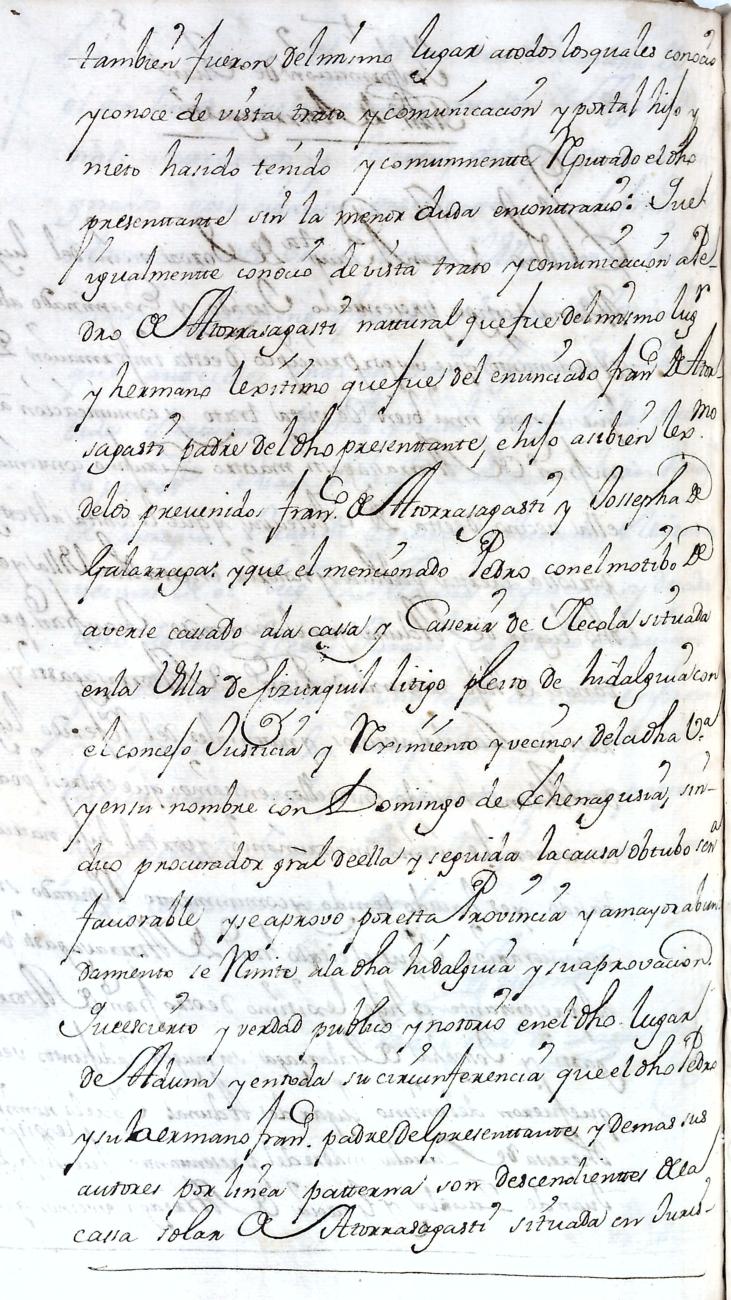 tambien fueron del mismo lugar atodos los quales conocio
y conoce de vista trato y comunicacion y por tal hijo y
nieto ha sido tenido y comunmentte Rputado el dho
presenttante sin la menor duda encontrario: Que
igualmentte conocio de vista trato y comunicacion a Pe-
dro de Atorrasagasti nattural que fue del mismo lugr
y hermano lexitimo que fue del enunciado Franco de Ator-
sagasti padre del dho presenttante, e hijo asibien lexmo
delos prevenidos Franco de Atorrasagasti y Jossepha de
Galarraga: y que el mencionado Pedro con el motibo de
averse cassado ala cassa y Casseria de Recola situada
en la Villa de Cizurquil litigo pleito de hidalguia con
el concejo Justicia y Rximiento y vecinos dela dha Va
y en su nombre con Domingo de Echenagusia, sin-
dico procurador gral de ella y seguida la causa obtubo sena
favorable y se aprovo por esta Provincia y a mayor abun-
damiento se Rmite ala dha hidalguia y su aprovacion.
Que es cierto y verdad publico y notorio en el dho lugar
de Aduna y en toda su circunferencia que el dho Pedro
y su hermano Franco padre del presenttante y demas sus
autores por linea patterna son descendienttes de la
cassa solar de Atorrasagasti situada en Juris-